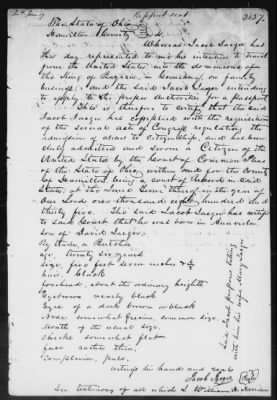 Passport sent
3857.
The State of Ohio
Hamilton County } Ss.
Whereas Jacob Jaeger has
this day represented to me his intention to travel
from the United States into the dominions of
the King of Bavaria, in Germany, on family
business; and the said Jacob Jaeger intending
to apply to the proper authority for a Passport
This is therefore to certify that the said
Jacob Jaeger has complied with the requisition
of the several acts of Congress regulating
admission of aliens to Citizenship, and has been
duly admitted and sworn a Citizen of the
United States by the Court of Common Pleas
of the State of Ohio, within and for the County
of Hamilton being a court of Record in said
State, at the June Term thereof in the year of
our Lord one thousand eight hundred and
thirty five. The said Jacob Jaeger has certified
to said Court that he was born in
son of David Jaeger,
By trade, a Butcher
age, twenty six years
Size, five feet seven inches &
hair, black
forehead, about the ordinary height
Eyebrows nearly black
Eyes of a dark brown or black
Nose somewhat common size.
Mouth of the usual size.
cheeks somewhat flat
face rather thin,
Complexion, pale,
witness his hand and seal
Jacob Jäger
In testimony of all which I William H. Harrison
Said Jacob Jaeger proposes taking
with him his wife Mary Jaeger